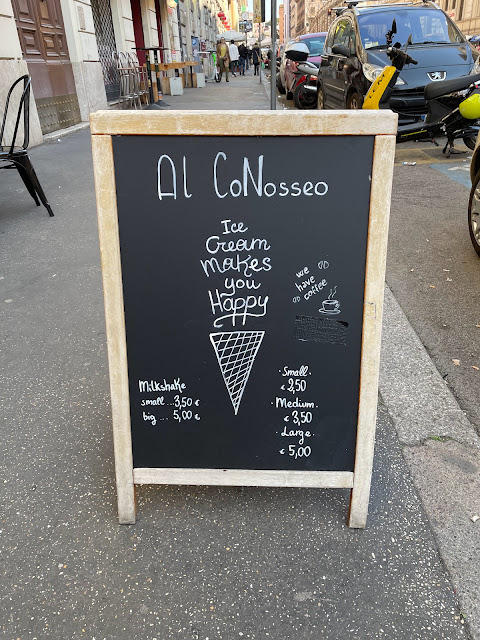 Al CoNosseo
Ice
Cream
makes
you
Happy
we
have
coffee
Milkshake
small...3,50 €
big... 5,00 €
· Small ·
€ 2,50
· Medium ·
€ 3,50
· Large ·
€ 5,00